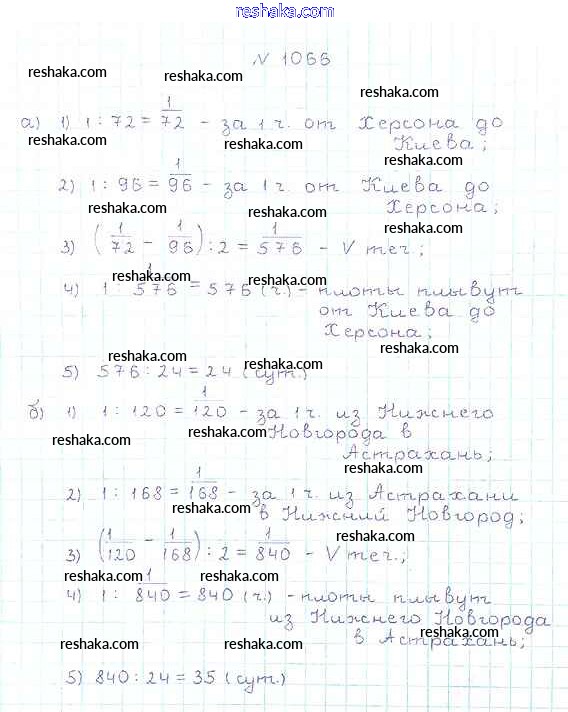 reshaka.com
№ 1066
reshaka.com reshaka.com reshaka.com
а) 1) 1 : 72 = 1/72 - за 1 ч. от Херсона до
reshaka.com reshaka.com Киева;
reshaka.com
2) 1 : 96 = 1/96 - за 1 ч. от Киева до
reshaka.com reshaka.com Херсона;
3) (1/72 - 1/96) : 2 = 1/576 - V теч.;
reshaka.com reshaka.com
4) 1 : 1/576 = 576 (ч.) - плоты плывут
от Киева до
Херсона;
reshaka.com reshaka.com reshaka.com
5) 576 : 24 = 24 (сут.)
б) 1) 1 : 120 = 1/120 - за 1 ч. из Нижнего
reshaka.com reshaka.com Новгорода в
Астрахань;
reshaka.com
2) 1 : 168 = 1/168 - за 1 ч. из Астрахани
reshaka.com в Нижний Новгород;
3) (1/120 - 1/168) : 2 = 1/840 - V теч.;
reshaka.com reshaka.com
4) 1 : 1/840 = 840 (ч.) - плоты плывут
из Нижнего Новгорода
reshaka.com reshaka.com в Астрахань; reshaka.com
5) 840 : 24 = 35 (сут.)